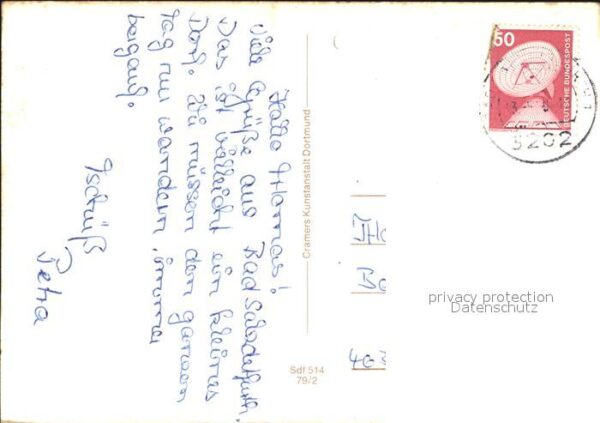 Hallo Thomas!
Viele Grüße aus Bad Salzdetfurth.
Das ist vielleicht ein kleines
Dorf. Wir müssen den ganzen
Tag nur wandern, immer
bergauf.
Tschüß
Petra
Cramers Kunstanstalt Dortmund
Sdf 514
79/2
50
DEUTSCHE BUNDESPOST
3202
privacy protection
Datenschutz